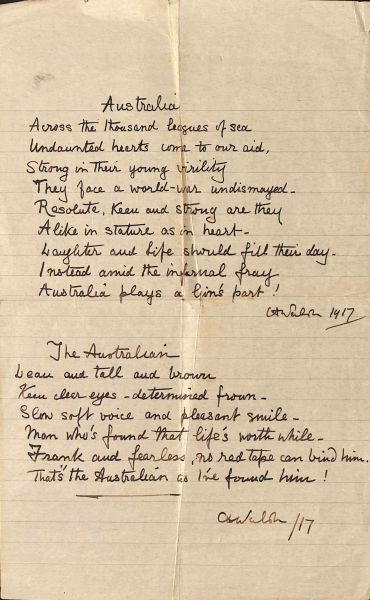 Australia
Across the thousand leagues of sea
Undaunted hearts come to our aid,
Strong in their young virility
They face a world-war undismayed -
Resolute, keen and strong are they
Alike in stature as in heart -
Laughter and life should fill their day -
Instead amid the infernal fray
Australia plays a lion's part !
CAWalsh 1917
The Australian
Lean and tall and brown
Keen clear eyes - determined frown -
Slow soft voice and pleasant smile -
Man who's found that life's worth while -
Frank and fearless, no red tape can bind him.
"That's" the Australian as I've found him !
CAWalsh /17